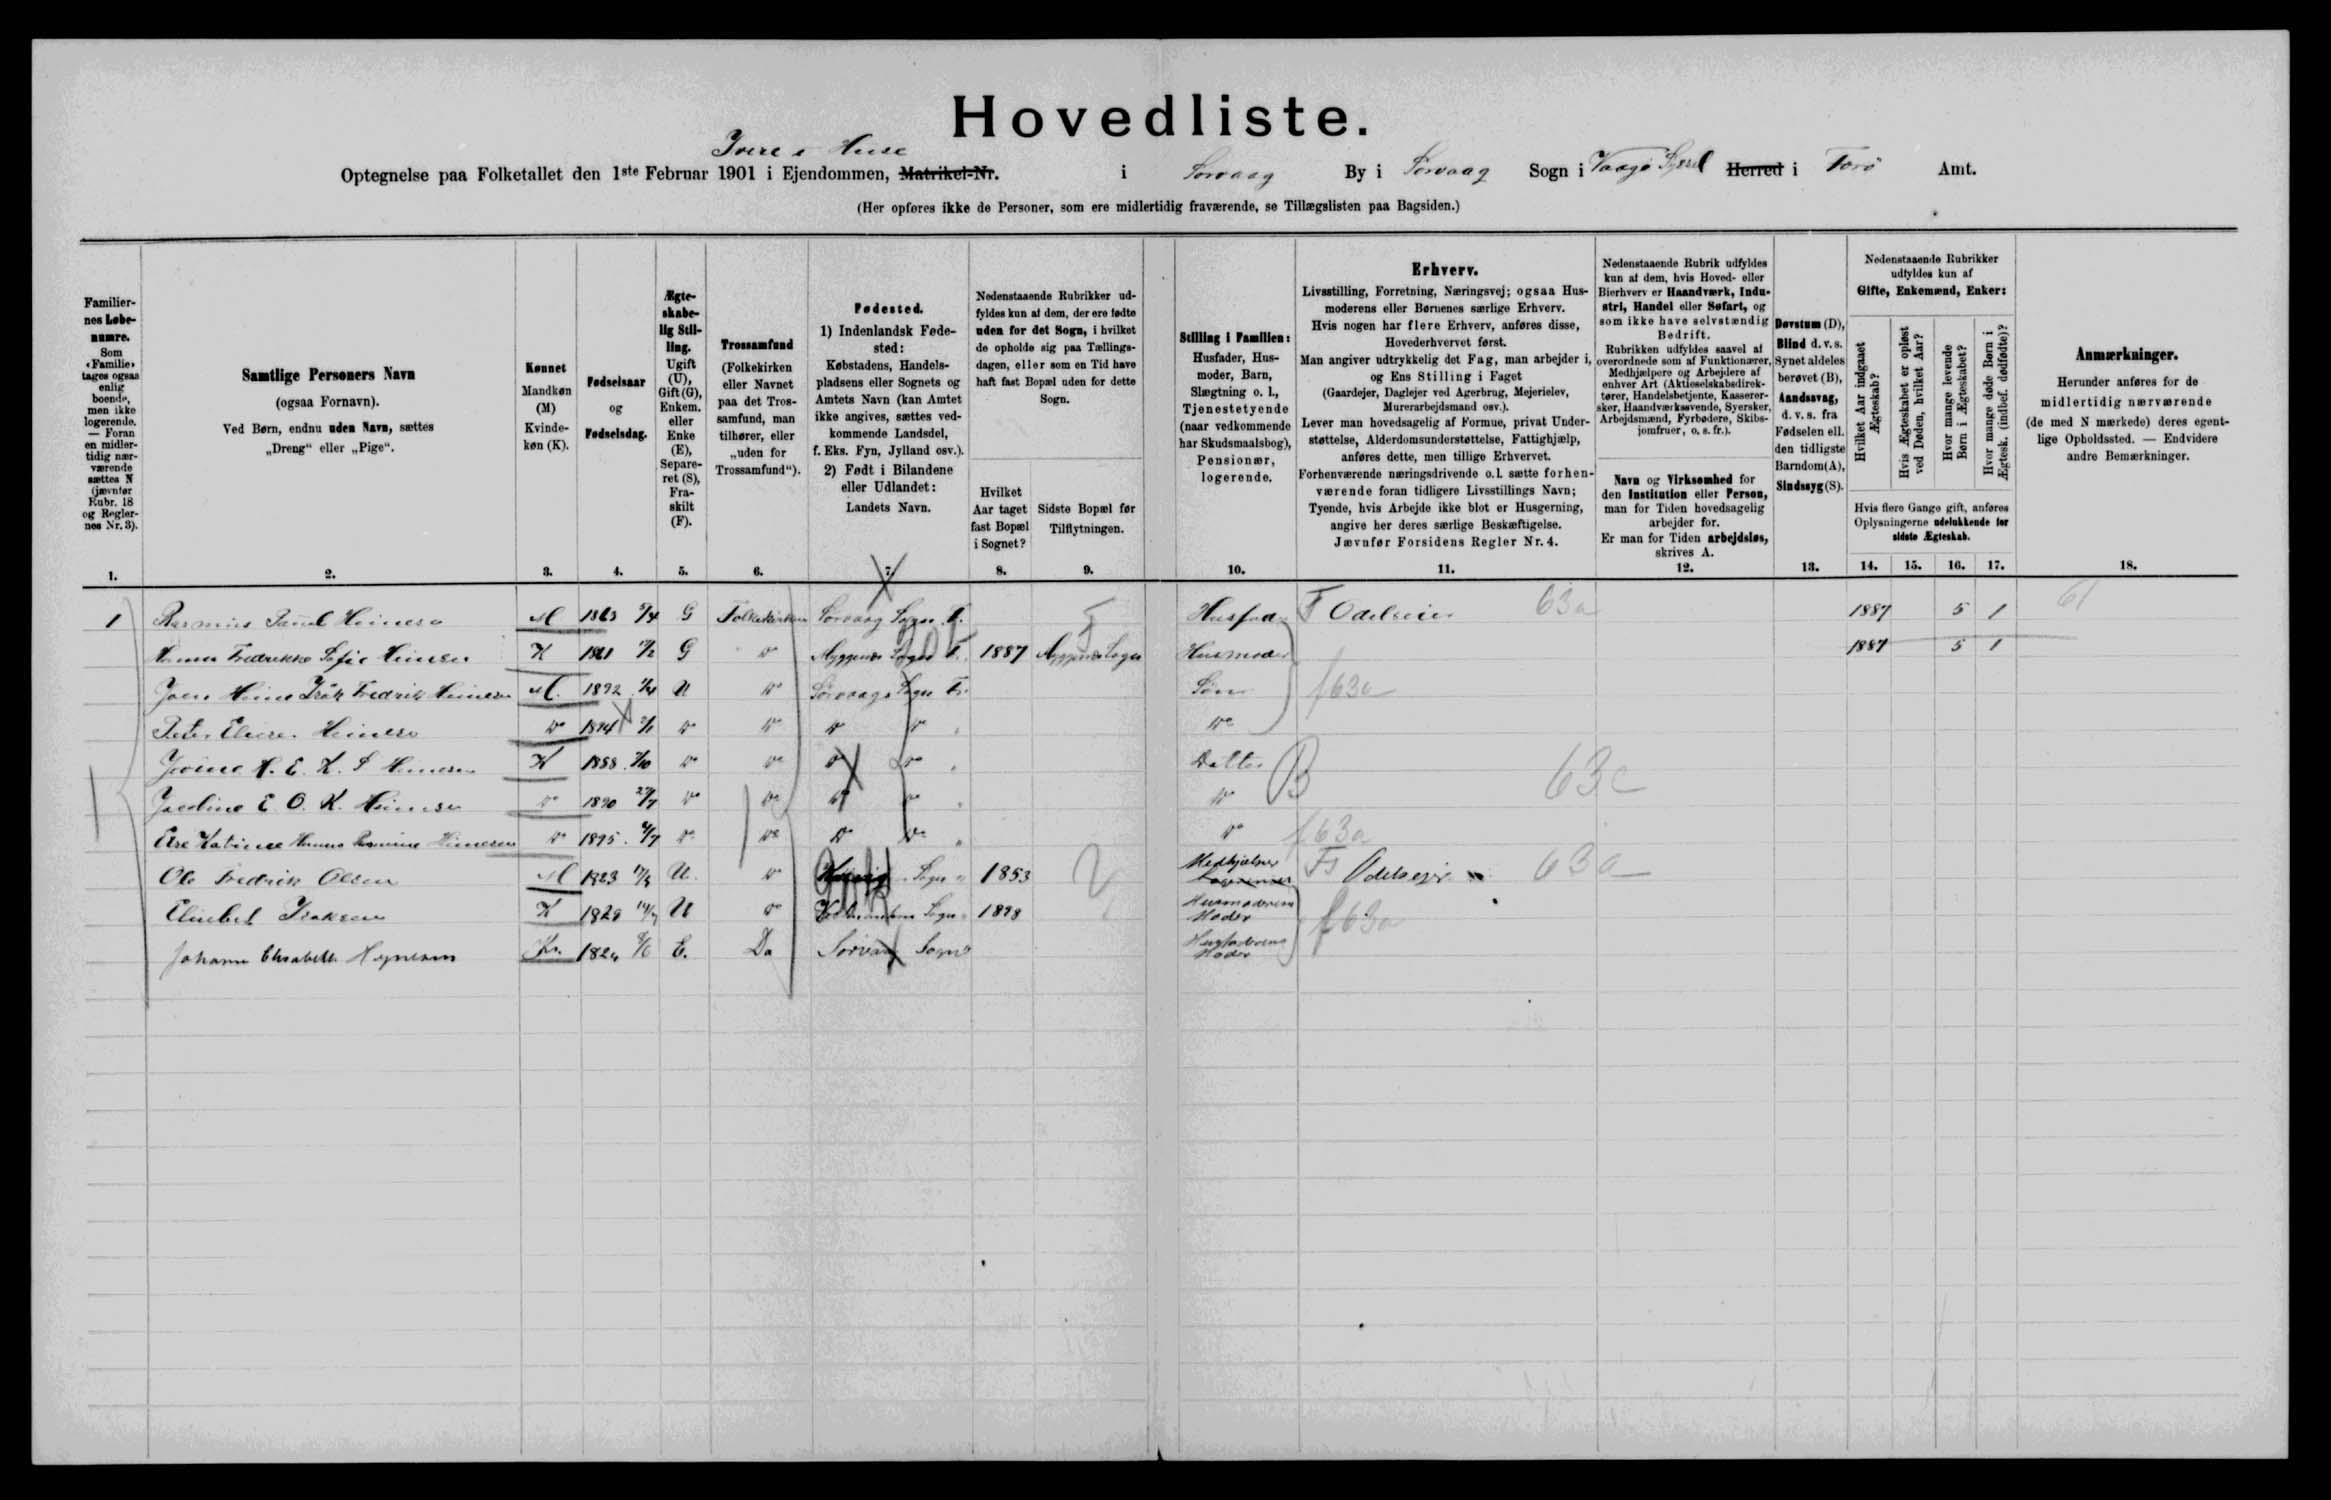 Hovedliste.
i Huse
Optegnelse paa Folketallet den 1ste Februar 1901 i Ejendommen, Matrikel-Nr. i Sorvaag By i Sorvaag Sogn i Vaagø Syssel Herred i Færø Amt.
(Her opføres ikke de Personer, som ere midlertidig fraværende, se Tillægslisten paa Bagsiden.)
Familiernes Løbenumre.
Som «Familie» tages ogsaa enlig boende, men ikke logerende. — Foran en midlertidig nærværende sættes N (jævnfør Rubr. 18 og Reglernes Nr. 3).
Samtlige Personers Navn
(ogsaa Fornavn).
Ved Børn, endnu uden Navn, sættes
„Dreng“ eller „Pige“.
Kønnet
Mandkøn (M)
Kvindekøn (K).
Fødselsaar
og
Fødselsdag.
Ægteskabelig Stilling.
Ugift (U), Gift (G), Enkem. eller Enke (E), Separeret (S), Fraskilt (F).
Trossamfund
(Folkekirken eller Navnet paa det Trossamfund, man tilhører, eller „uden for Trossamfund“).
Fødested.
1) Indenlandsk Fødested:
Købstadens, Handelspladsens eller Sognets og Amtets Navn (kan Amtet ikke angives, sættes vedkommende Landsdel, f. Eks. Fyn, Jylland osv.).
2) Født i Bilandene eller Udlandet:
Landets Navn.
Nedenstaaende Rubrikker udfyldes kun af dem, der ere fødte uden for det Sogn, i hvilket de opholde sig paa Tællingsdagen, eller som en Tid have haft fast Bopæl uden for dette Sogn.
Hvilket Aar taget fast Bopæl i Sognet?
Sidste Bopæl før Tilflytningen.
Stilling i Familien:
Husfader, Husmoder, Barn, Slægtning o. l., Tjenestetyende (naar vedkommende har Skudsmaalsbog), Pensionær, logerende.
Erhverv.
Livsstilling, Forretning, Næringsvej; ogsaa Husmoderens eller Børnenes særlige Erhverv.
Hvis nogen har flere Erhverv, anføres disse, Hovederhvervet først.
Man angiver udtrykkelig det Fag, man arbejder i, og Ens Stilling i Faget
(Gaardejer, Daglejer ved Agerbrug, Mejerielev, Murerarbejdsmand osv.).
Lever man hovedsagelig af Formue, privat Understøttelse, Alderdomsunderstøttelse, Fattighjælp, anføres dette, men tillige Erhvervet.
Forhenværende næringsdrivende o. l. sætte forhenværende foran tidligere Livsstillings Navn;
Tyende, hvis Arbejde ikke blot er Husgerning, angive her deres særlige Beskæftigelse.
Jævnfør Forsidens Regler Nr. 4.
Nedenstaaende Rubrik udfyldes kun af dem, hvis Hoved- eller Bierhverv er Haandværk, Industri, Handel eller Søfart, og som ikke have selvstændig Bedrift.
Rubrikken udfyldes saavel af overordnede som af Funktionærer, Medhjælpere og Arbejdere af enhver Art (Aktieselskabsdirektører, Handelsbetjente, Kasserersker, Haandværkssvende, Syersker, Arbejdsmænd, Fyrbødere, Skibsjomfruer, o. s. fr.).
Navn og Virksomhed for den Institution eller Person, man for Tiden hovedsagelig arbejder for.
Er man for Tiden arbejdsløs, skrives A.
Døvstum (D), Blind d. v. s. Synet aldeles berøvet (B), Aandssvag, d. v. s. fra Fødselen ell. den tidligste Barndom (A), Sindssyg (S).
Nedenstaaende Rubrikker udfyldes kun af
Gifte, Enkemænd, Enker:
Hvilket Aar indgaaet Ægteskab?
Hvis Ægteskabet er opløst ved Døden, hvilket Aar?
Hvor mange levende Børn i Ægteskabet?
Hvor mange døde Børn i Ægtesk. (indbef. dødfødte)?
Hvis flere Gange gift, anføres Oplysningerne udelukkende for sidste Ægteskab.
Anmærkninger.
Herunder anføres for de midlertidig nærværende (de med N mærkede) deres egentlige Opholdssted. — Endvidere andre Bemærkninger.
1. 2. 3. 4. 5. 6. 7. 8. 9. 10. 11. 12. 13. 14. 15. 16. 17. 18.
1 Rasmus Paul Heinesen M 1863 G Folkekirken Sorvaag Sogn F. Husfader F Odelseier 63a 1887 5 1 61
Hanna Fredrikke Sofie Heinesen K 1861 G do Myggenæs Sogn F. 1887 Myggenæs Sogn Husmoder 1887 5 1
Joen Heine Isak Fredrik Heinesen M. 1892 U do Sørvaags Sogn F. Søn f63a
Peter Heinesen do 1894 do do do do do
H. E. K. S Heinesen K 1888 do do do do Datter B 63c
E. O. K. Heinesen do 1890 do do do do do
Else Katrine Hanna Heinesen do 1895 do do do do do f63a
Ole Fredrik Olsen M 1823 U. do Sogn 1853 Medhjælper Fs Odelseier 63a
Elsebet Isaksen K 1829 U do Sogn 1898 Husmoderens Moder f63a
Johanne Elisabeth Kv. 1824 E. Do Sørvaag Sogn Husfaderens Moder